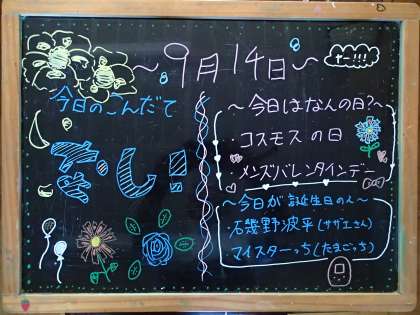 ~9月14日~
やー!!!
今日のこんだて
なし!
~今日はなんの日?~
・コスモスの日
・メンズバレンタインデー
~今日がお誕生日の人~
石幾野波平(サザエさん)
マイスターっち(たまごっち)